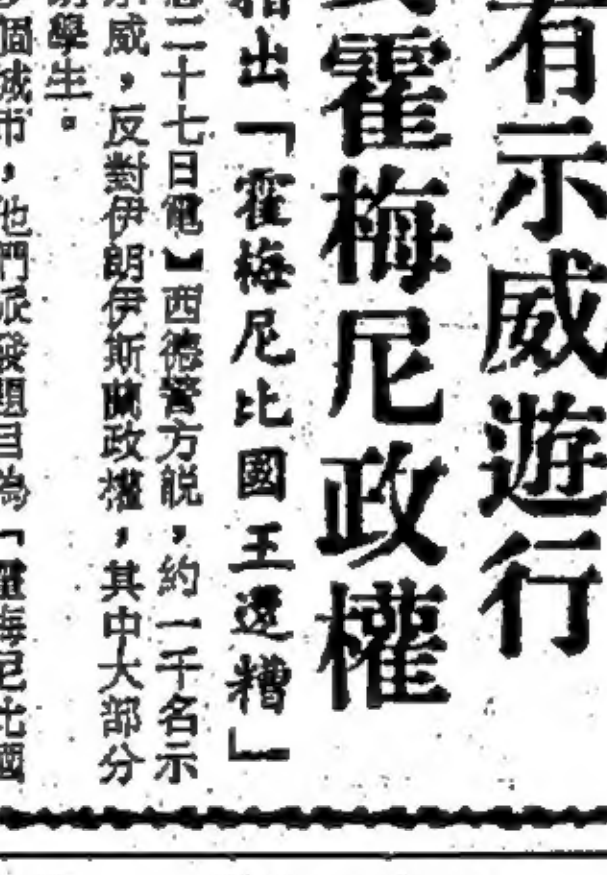 有示威遊行
霍梅尼政權
指出「霍梅尼比國王還糟」
二十七日電】西德警方説，約一千名示
威，反對伊朗伊斯蘭政權，其中大部分
學生。
個城市，他們派發題目為「霍梅尼比國